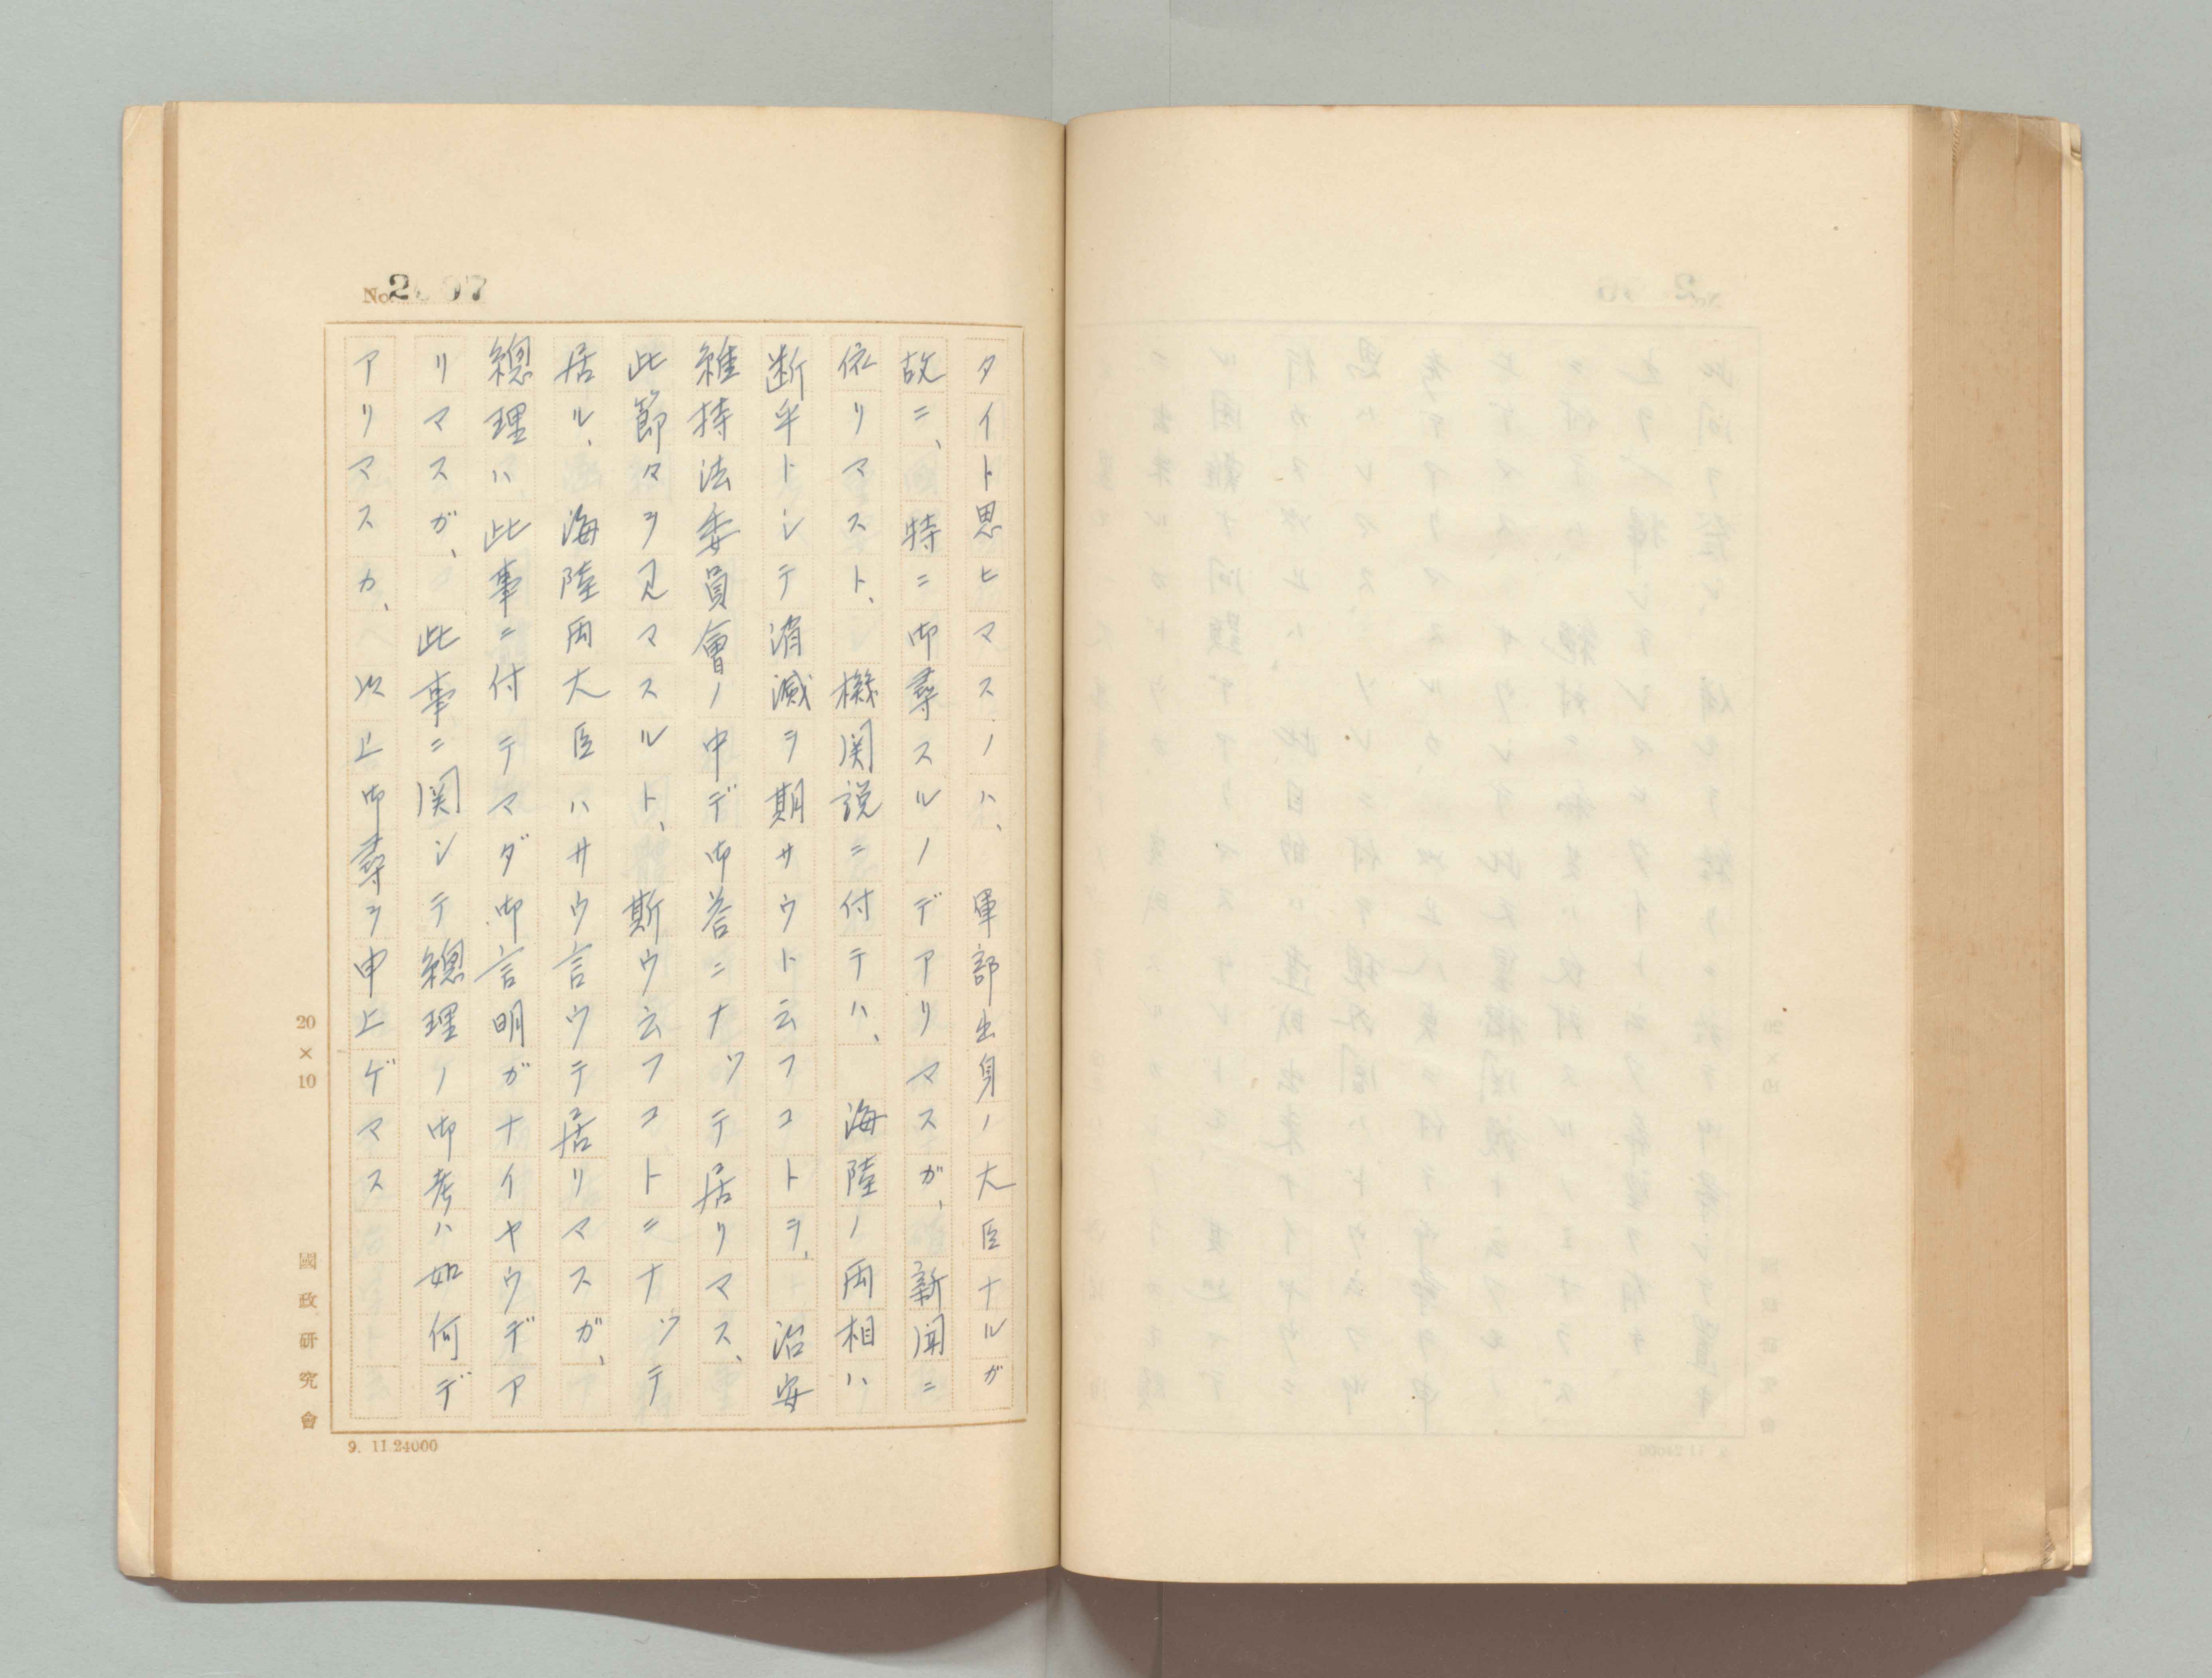 No. 2 07
タイト思ヒマスノハ、軍部出身ノ大臣ナルガ
故ニ、特ニ御尋スルノデアリマスガ、新聞ニ
依リマスト、機関説ニ付テハ、海陸ノ両相ハ
断乎トシテ消滅ヲ期サウト云フコトヲ、治安
維持法委員會ノ中デ御答ニナツテ居リマス、
此節々ヲ見マスルト、斯ウ云フコトニナツテ
居ル、海陸両大臣ハサウ言ウテ居リマスガ、
總理ハ此事ニ付テマダ御言明ガナイヤウデア
リマスガ、此事ニ関シテ總理ノ御考ハ如何デ
アリマスカ、以上御尋ヲ申上ゲマス
20×10
國政研究會
9. 11 24000